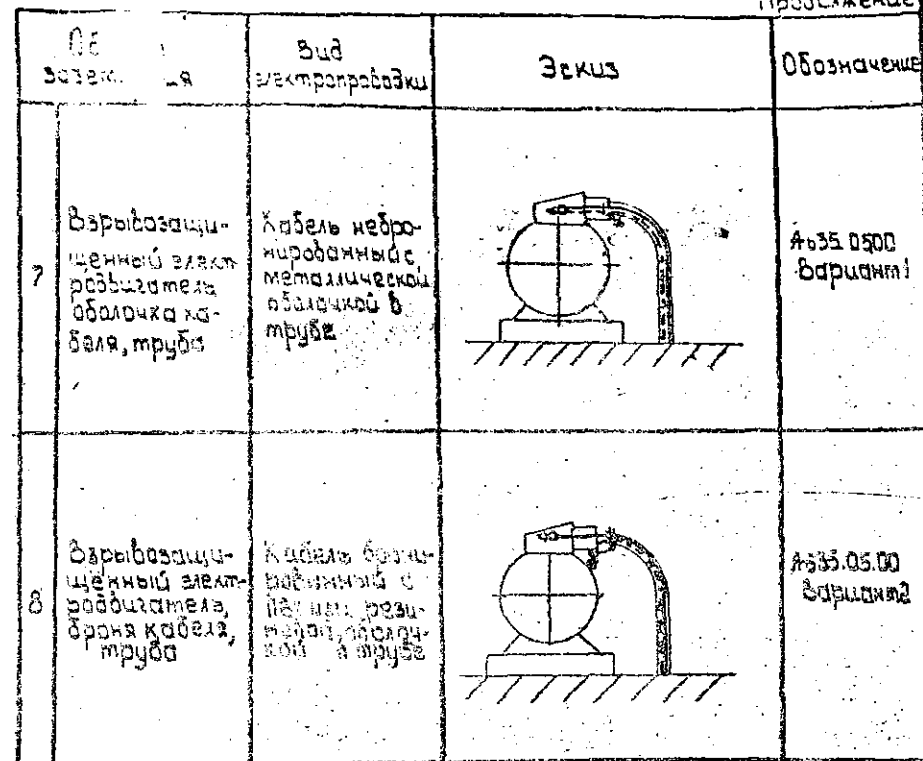 Продолжение
Вид
электропроводки
Эскиз
Обозначение
7
Взрывозащи-
щенный элект
родвигатель
оболочка ка-
беля, труба
Кабель небро-
нированный с
металлической
оболочкой в
трубе
А635.0500
Вариант 1
8
Взрывозащи-
щённый элект-
родвигатель,
броня кабеля,
труба
Кабель брони-
рованный с
или рези-
новой оболоч-
кой в трубе
А635.05.00
Вариант 2